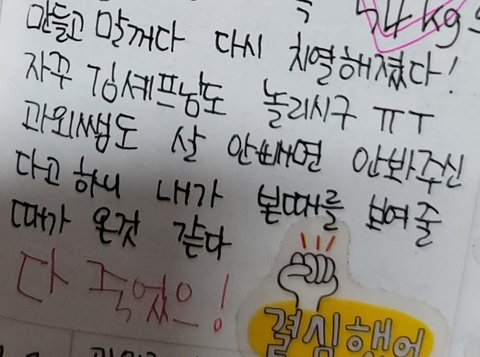 kg
만들고 말꺼다 다시 치열해졌다!
자꾸 김셰프님도 놀리시구 ㅠㅜ
과외쌤도 살 안빼면 안봐주신
다고 하니 내가 본때를 보여줄
때가 온것 같다
다 죽었으!
결심했어